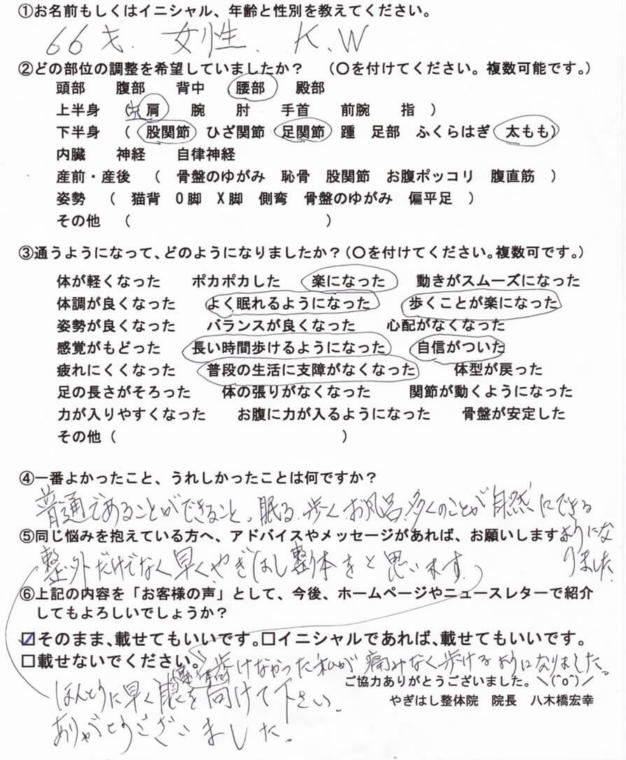 ①お名前もしくはイニシャル、年齢と性別を教えてください。
66才. 女性. K.W
②どの部位の調整を希望していましたか? (〇を付けてください。複数可能です。)
頭部 腹部 背中 腰部 殿部
上半身 ( 肩 腕 肘 手首 前腕 指 )
下半身 ( 股関節 ひざ関節 足関節 踵 足部 ふくらはぎ 太もも)
内臓 神経 自律神経
産前・産後 ( 骨盤のゆがみ 恥骨 股関節 お腹ポッコリ 腹直筋 )
姿勢 ( 猫背 O脚 X脚 側弯 骨盤のゆがみ 偏平足 )
その他 ( )
③通うようになって、どのようになりましたか?(〇を付けてください。複数可です。)
体が軽くなった ポカポカした 楽になった 動きがスムーズになった
体調が良くなった よく眠れるようになった 歩くことが楽になった
姿勢が良くなった バランスが良くなった 心配がなくなった
感覚がもどった 長い時間歩けるようになった 自信がついた
疲れにくくなった 普段の生活に支障がなくなった 体型が戻った
足の長さがそろった 体の張りがなくなった 関節が動くようになった
力が入りやすくなった お腹に力が入るようになった 骨盤が安定した
その他 ( )
④一番よかったこと、うれしかったことは何ですか?
普通であることができること、眠る、歩く、お風呂、多くのことが自然にできる
ようになりました
⑤同じ悩みを抱えている方へ、アドバイスやメッセージがあれば、お願いします
整外だけでなく早くやぎはし整体をと思います。
⑥上記の内容を「お客様の声」として、今後、ホームページやニュースレターで紹介
してもよろしいでしょうか?
☑そのまま、載せてもいいです。☐イニシャルであれば、載せてもいいです。
☐載せないでください。
歩けなかった私が痛みなく歩けるようになりました。
ご協力ありがとうございました。＼(^o^)／
ほんとうに早く を向けて下さい。
やぎはし整体院 院長 八木橋宏幸
ありがとうございました。